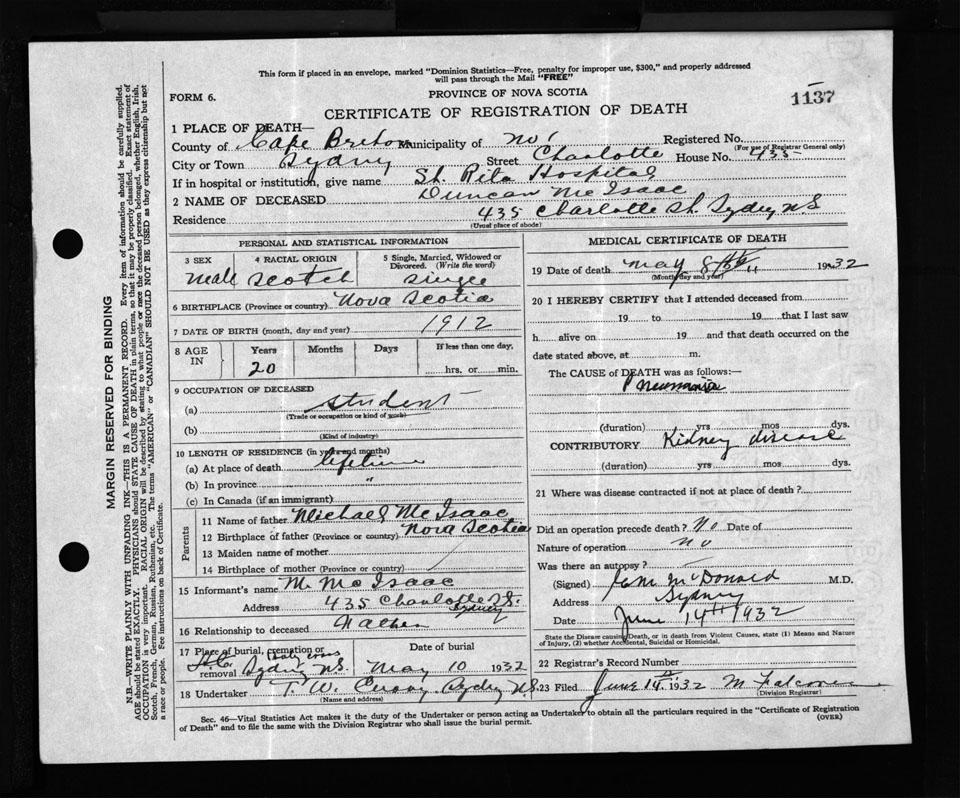 This form if placed in an envelope, marked "Dominion Statistics—Free, penalty for improper use, $300," and properly addressed
will pass through the Mail "FREE"
FORM 6.
PROVINCE OF NOVA SCOTIA
1137
CERTIFICATE OF REGISTRATION OF DEATH
1 PLACE OF DEATH—
County of Cape Breton Municipality of No 1 Registered No.
(For use of Registrar General only)
City or Town Sydney Street Charlotte House No. 435
If in hospital or institution, give name St. Rita Hospital
2 NAME OF DECEASED Duncan McIsaac
Residence 435 Charlotte St. Sydney N.S
(Usual place of abode)
PERSONAL AND STATISTICAL INFORMATION
3 SEX Male
4 RACIAL ORIGIN Scotch
5 Single, Married, Widowed or Divorced. (Write the word) Single
6 BIRTHPLACE (Province or country) Nova Scotia
7 DATE OF BIRTH (month, day and year) 1912
8 AGE IN Years Months Days If less than one day,
20 hrs. or min.
9 OCCUPATION OF DECEASED
(a) Student
(Trade or occupation or kind of work)
(b)
(Kind of industry)
10 LENGTH OF RESIDENCE (in years and months)
(a) At place of death lifetime
(b) In province "
(c) In Canada (if an immigrant)
Parents
11 Name of father Michael McIsaac
12 Birthplace of father (Province or country) Nova Scotia
13 Maiden name of mother
14 Birthplace of mother (Province or country)
15 Informant's name M. McIsaac
Address 435 Charlotte St.
Sydney
16 Relationship to deceased Father
17 Place of burial, cremation or removal Date of burial
Holy Cross
Sydney N.S. May 10 1932
18 Undertaker T. W. Curry Sydney N.S.
(Name and address)
MEDICAL CERTIFICATE OF DEATH
19 Date of death May 8th 1932
(Month, day and year)
20 I HEREBY CERTIFY that I attended deceased from
19 to 19 that I last saw
h alive on 19 and that death occurred on the
date stated above, at m.
The CAUSE of DEATH was as follows:—
Pneumonia
(duration) yrs mos dys.
CONTRIBUTORY Kidney disease
(duration) yrs mos dys.
21 Where was disease contracted if not at place of death?
Did an operation precede death? No Date of
Nature of operation no
Was there an autopsy?
(Signed) McDonald M.D.
Address Sydney
Date June 14th 1932
State the Disease causing Death, or in death from Violent Causes, state (1) Means and Nature
of Injury, (2) whether Accidental, Suicidal or Homicidal.
22 Registrar's Record Number
23 Filed June 14th 1932 M Falconer
(Division Registrar)
Sec. 46—Vital Statistics Act makes it the duty of the Undertaker or person acting as Undertaker to obtain all the particulars required in the "Certificate of Registration
of Death" and to file the same with the Division Registrar who shall issue the burial permit.
(OVER)
MARGIN RESERVED FOR BINDING
N.B.—WRITE PLAINLY WITH UNFADING INK—THIS IS A PERMANENT RECORD. Every item of information should be carefully supplied.
AGE should be stated EXACTLY. PHYSICIANS should STATE CAUSE OF DEATH in plain terms, so that it may be properly classified. Exact statement of
OCCUPATION is very important. RACIAL ORIGIN will be described by stating to what people or race the deceased person belonged, whether English, Irish,
Scotch, French, German, Russian, Ruthenian, etc. The terms "AMERICAN" or "CANADIAN" SHOULD NOT BE USED as they express citizenship but not
a race or people. Fee instructions on back of Certificate.